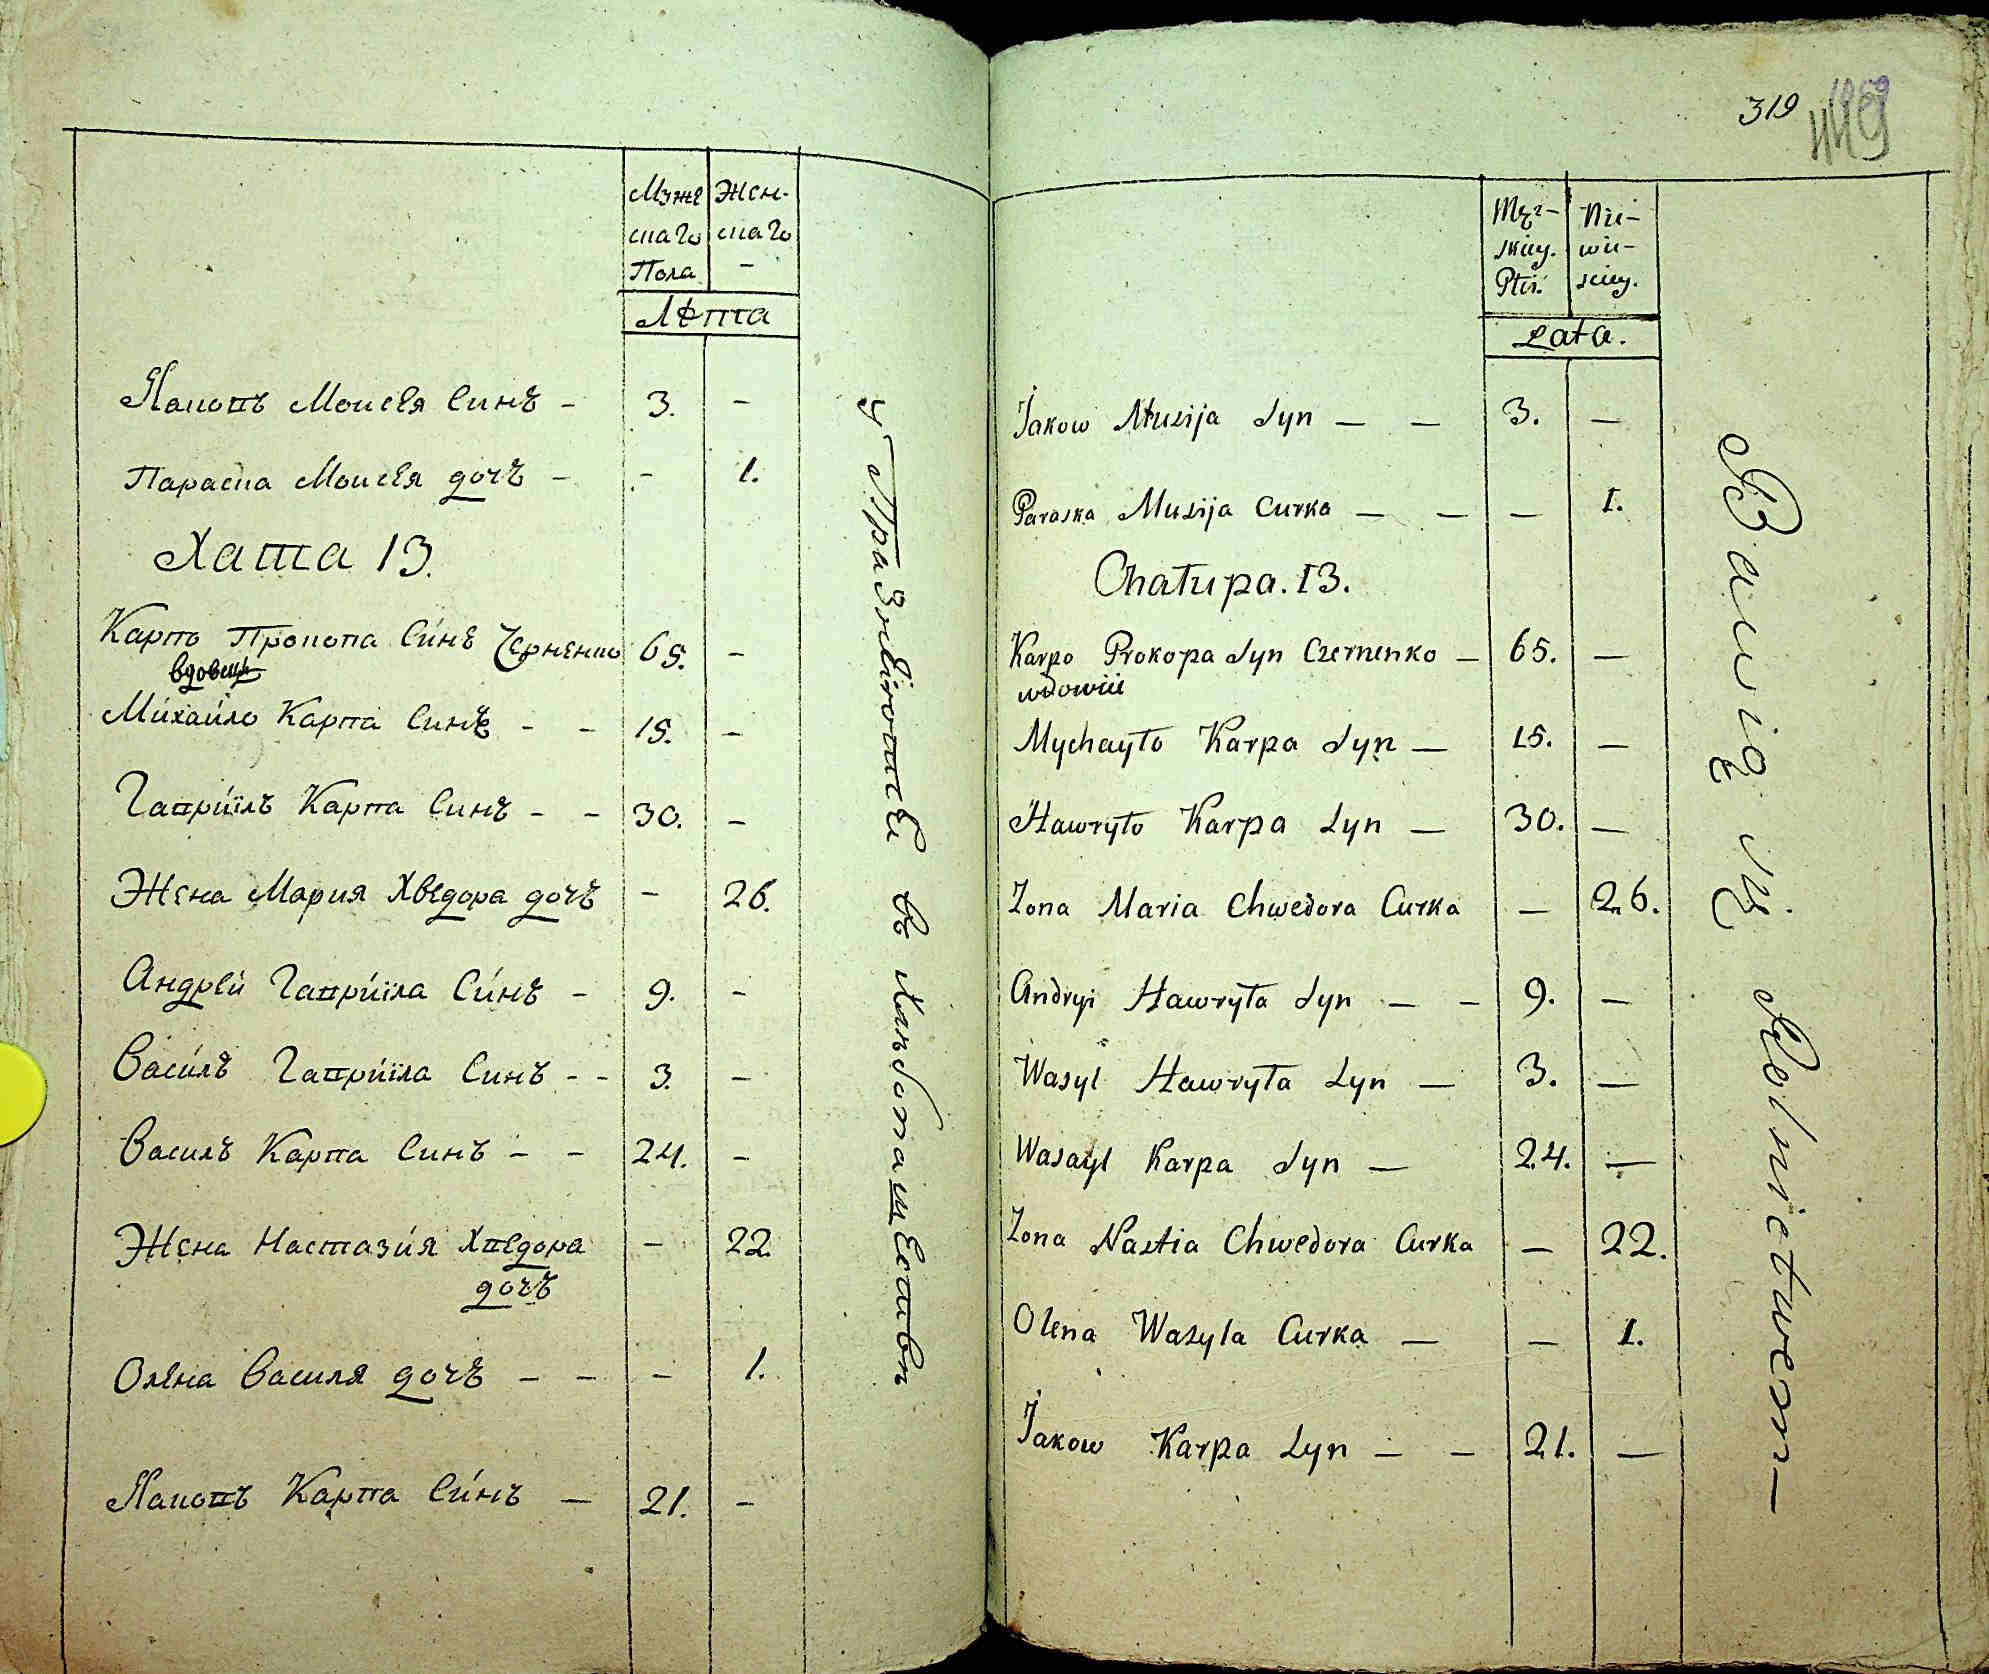 Муже
скаго
Пола
Жен-
скаго
-
Лѣта
Яковъ Моисея Синъ - 3. -
Параска Моисея дочъ - - 1.
Хата 13.
Карпъ Прокопа Синъ Черненко 65. -
вдовецъ
Михайло Карпа Синъ - - 15. -
Гавріилъ Карпа Синъ - - 30. -
Жена Мария Хведора дочъ - 26.
Андрей Гавріила Синъ - 9. -
Василъ Гавріила Синъ - - 3. -
Василъ Карпа Синъ - - 24. -
Жена Настазия Хведора - 22.
дочъ
Олена Василя дочъ - - - 1.
Яковъ Карпа Синъ - 21. -
319
Męz-
skiey.
Płci.
Nie-
wie-
sciey.
Lata.
Jakow Musija Syn — — 3. —
Paraska Musija Curka — — — 1.
Chałupa. 13.
Karpo Prokopa Syn Czernenko — 65. —
wdowiec
Mychayło Karpa Syn — 15. —
Hawryło Karpa Syn — 30. —
Zona Maria Chwedora Curka — 26.
Andryi Hawryła Syn — — 9. —
Wasyl Hawryła Syn — 3. —
Wasayl Karpa Syn — 24. —
Zona Nastia Chwedora Curka — 22.
Olena Wasyla Curka — — 1.
Jakow Karpa Syn — — 21. —
Bawią się Rolnictwem—